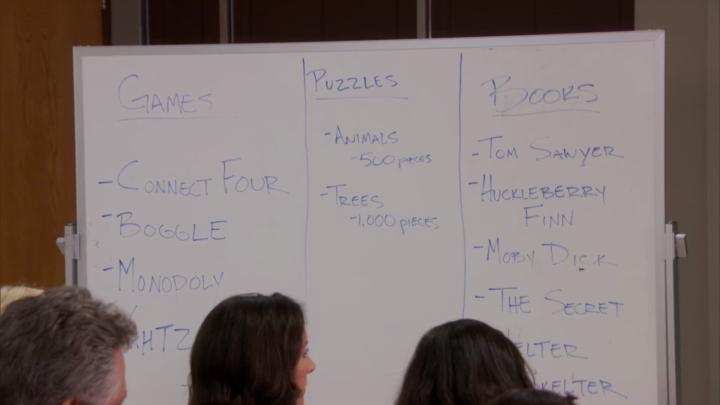 GAMES
-CONNECT FOUR
-BOGGLE
-MONOPOLY
AHTZ
PUZZLES
-ANIMALS
-500 PIECES
-TREES
-1,000 PIECES
BOOKS
-TOM SAWYER
-HUCKLEBERRY
FINN
-MOBY DICK
-THE SECRET
ELTER
KELTER